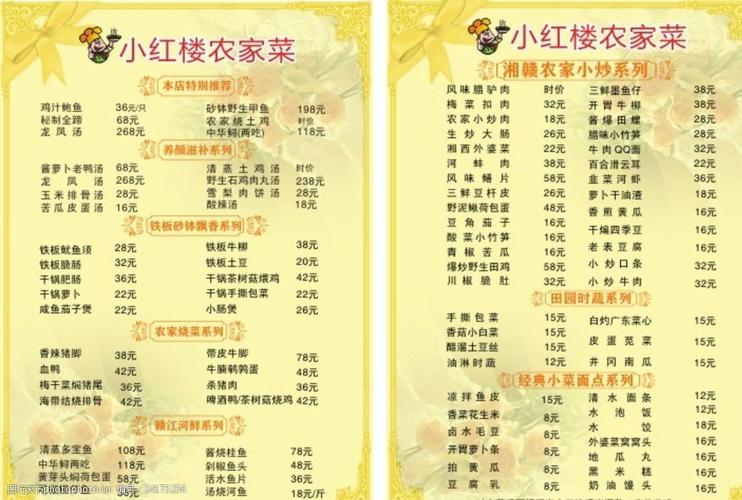 小红楼农家菜
本店特别推荐
鸡汁鲍鱼 36元/只 砂钵野生甲鱼 198元
秘制全蹄 68元 农家烧土鸡 时价
龙凤汤 268元 中华鲟(两吃) 118元
养颜滋补系列
酱萝卜老鸭汤 68元 清蒸土鸡汤 时价
龙凤汤 268元 野生石鸡肉丸汤 238元
玉米排骨汤 28元 雪梨肉饼汤 28元
苦瓜皮蛋汤 16元 酸辣汤 18元
铁板砂钵飘香系列
铁板鱿鱼须 28元 铁板牛柳 38元
铁板脆肠 32元 铁板土豆 20元
干锅肥肠 36元 干锅茶树菇煨鸡 42元
干锅萝卜 22元 干锅手撕包菜 22元
咸鱼茄子煲 22元 小肠煲 26元
农家烧菜系列
香辣猪脚 38元 带皮牛脚 78元
血鸭 42元 牛腩鹌鹑蛋 48元
梅干菜焖猪尾 36元 杀猪肉 36元
海带结烧排骨 42元 啤酒鸭/茶树菇烧鸡 42元
赣江河鲜系列
清蒸多宝鱼 108元 酱烧桂鱼 78元
中华鲟两吃 118元 剁椒鱼头 48元
黄芽头焖荷包蛋 68元 活水鱼片 36元
汤烧河鱼 18元/斤
小红楼农家菜
湘赣农家小炒系列
风味腊驴肉 时价 三鲜墨鱼仔 38元
梅菜扣肉 32元 开胃牛柳 38元
农家小炒肉 18元 酱爆田螺 28元
生炒大肠 26元 腊味小竹笋 28元
湘西外婆菜 22元 牛肉QQ面 32元
河蚌肉 38元 百合滑云耳 22元
风味鳝片 58元 韭菜河虾 36元
三鲜豆杆皮 26元 萝卜干油渣 18元
野泥鳅荷包蛋 48元 香煎黄瓜 16元
豆角茄子 16元 干煸四季豆 16元
酸菜小竹笋 16元 老表豆腐 16元
青椒苦瓜 16元 小炒口条 32元
爆炒野生田鸡 58元 小炒牛肉 32元
川椒脆肚 32元
田园时蔬系列
手撕包菜 15元 白灼广东菜心 15元
香菇小白菜 15元 皮蛋苋菜 15元
醋溜土豆丝 15元 井冈南瓜 15元
油淋时蔬 12元
经典小菜面点系列
凉拌鱼皮 15元 清水面条 12元
香菜花生米 8元 水泡饭 12元
卤水毛豆 8元 水饺 18元
开胃萝卜条 8元 外婆菜窝窝头 16元
拍黄瓜 8元 地瓜丸 16元
豆腐乳 8元 黑米糕 16元
奶油馒头 16元